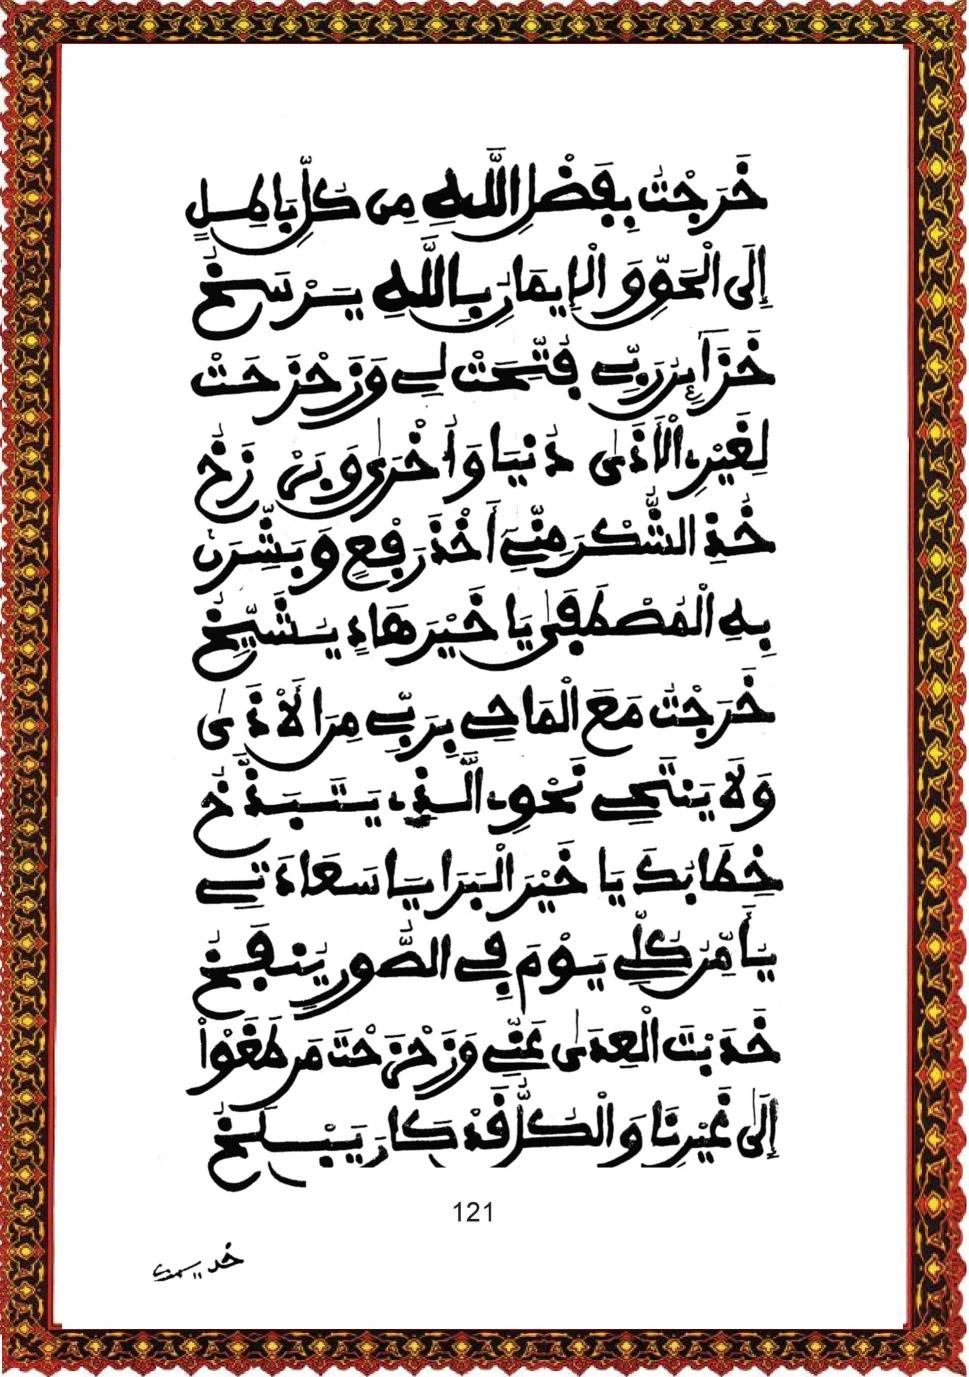 خَرَجْتُ بِفَضْلِ اللَّهِ مِن كُلِّ بَاطِلٍ
إِلَى الْحَقِّ وَالْإِيمَانِ بِاللَّهِ يَرْسَخُ
خَزَآئِنُ رَبِّي فُتِّحَتْ لِي وَزَحْزَحَتْ
لِغَيْرِ الْأَذَى دُنْيَا وَأُخْرَى وَبَيْ زَخُ
خُذِ الشُّكْرَ مِنِّيَ أَخْذَ رَفْعٍ وَبَشِّرَنْ
بِهِ الْمُصْطَفَى يَا خَيْرَ هَادٍ يُشَيِّخُ
خَرَجْتُ مَعَ الْمَاحِي بِرَبِّي مِنَ الْأَذَى
وَلَا يَنْتَحِي نَحْوِي الَّذِي يَتَبَذَّخُ
خِطَابُكَ يَا خَيْرَ الْبَرَايَا سَعَادَتِي
يَا مِنْ كُلِّي يَوْمَ فِي الصُّورِ يُنفَخُ
خَدَيْتَ الْعِدَى عَنِّي وَزَحْزَحْتَ مَن طَغَوْا
إِلَى غَيْرِنَا وَالْكُلُّ قَدْ كَانَ يَبْلَخُ
121
خديم